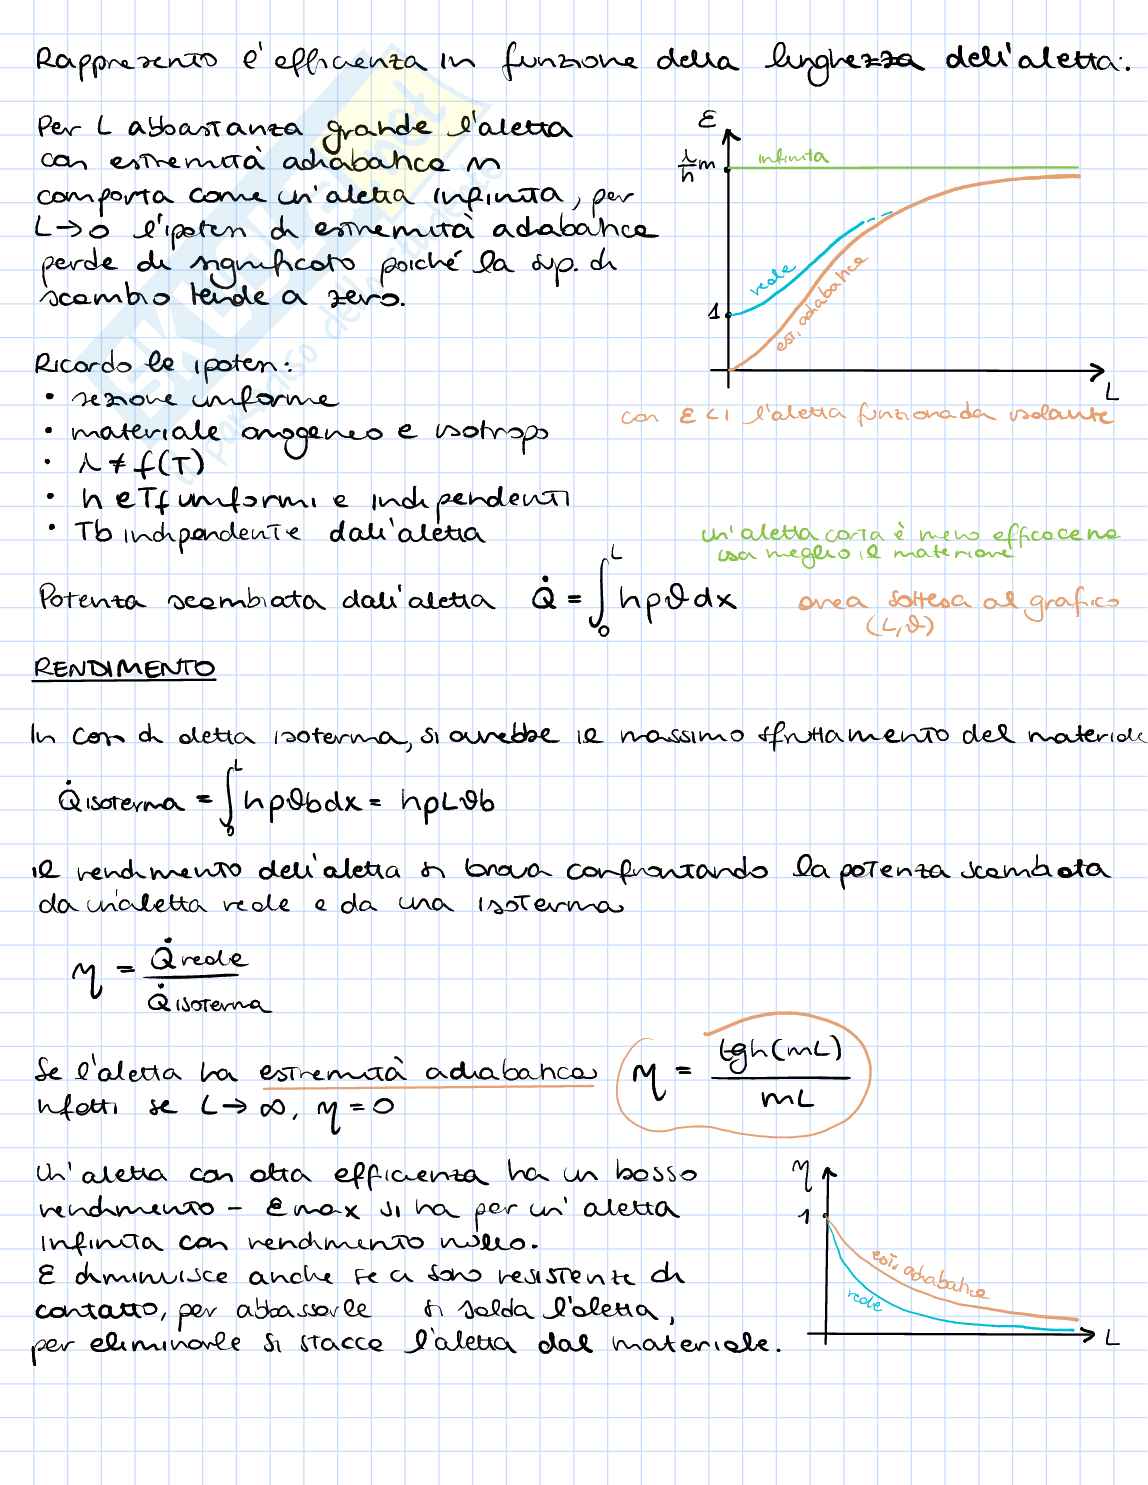 Rappresento l'efficienza in funzione della lunghezza dell'aletta:
Per L abbastanza grande l'aletta
con estremità adiabatica si
comporta come un'aletta infinita, per
L→0 l'ipotesi di estremità adiabatica
perde di significato poiché la sup. di
scambio tende a zero.
ε
λ/h m
infinita
reale
est. adiabatica
1
L
con ε<1 l'aletta funziona da isolante
Ricordo le ipotesi:
• sezione uniforme
• materiale omogeneo e isotropo
• λ ≠ f(T)
• h e Tf uniformi e indipendenti
• Tb indipendente dall'aletta
un'aletta corta è meno efficace ma
usa meglio il materiale
Potenza scambiata dall'aletta Q̇ = ∫₀ᴸ hpϑdx
area sottesa al grafico
(L,ϑ)
RENDIMENTO
In caso di aletta isoterma, si avrebbe il massimo sfruttamento del materiale
Q̇isoterma = ∫₀ᴸ hpϑbdx = hpLϑb
il rendimento dell'aletta si trova confrontando la potenza scambiata
da un'aletta reale e da una isoterma
η = Q̇reale / Q̇isoterma
Se l'aletta ha estremità adiabatica η = tgh(mL) / mL
infatti se L→∞, η=0
Un'aletta con alta efficienza ha un basso
rendimento - εmax si ha per un'aletta
infinita con rendimento nullo.
ε diminuisce anche se ci sono resistenze di
contatto, per abbassarle si salda l'aletta,
per eliminarle si stacca l'aletta dal materiale.
η
1
est. adiabatica
reale
L